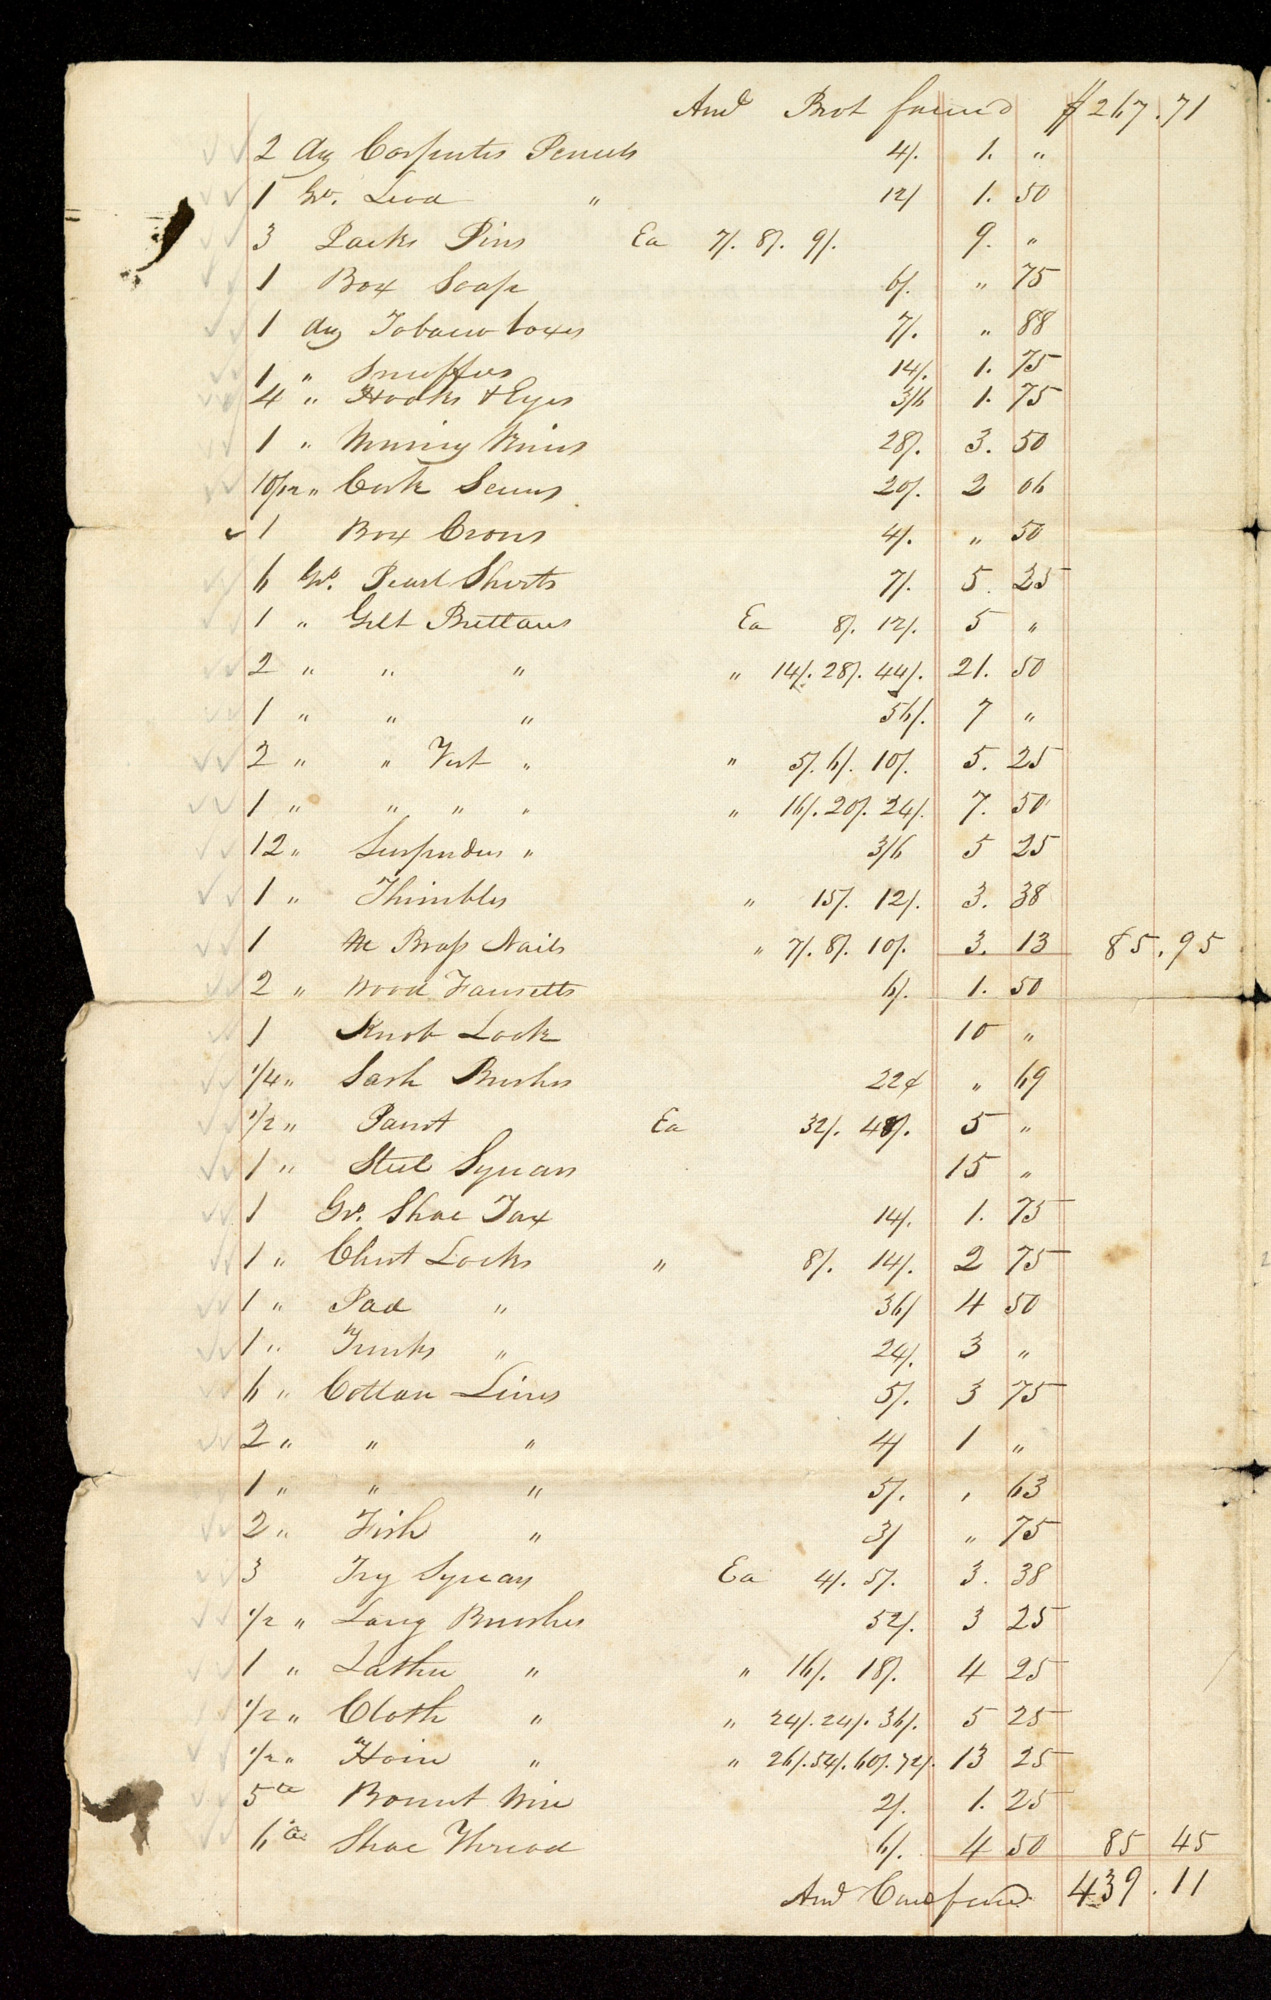 Amt Brot forwd $267.71
2 dz Carpenters Pencils 4/. 1. "
1 Gro. Lead " 12/ 1. 50
3 Packs Pins Ea 7/. 8/. 9/. 9. "
1 Box Soap 6/. " 75
1 dz Tobacco boxes 7/. " 88
1 " Snuffers 14/. 1. 75
4 " Hooks & Eyes 3/6 1. 75
1 " 28/. 3. 50
10/12 " Cork Screws 20/. 2 06
1 Box 4/. " 50
6 Gro. Pearl Shirts 7/. 5. 25
1 " Gilt Buttans Ea 8/. 12/. 5 "
2 " " " " 14/. 28/. 44/. 21. 50
1 " " " 56/. 7 "
2 " " Vest " " 5/. 6/. 10/. 5. 25
1 " " " " " 16/. 20/. 24/. 7. 50
12 " Suspenders " 3/6 5 25
1 " Thimbles " 15/. 12/. 3. 38
1 M Brass Nails " 7/. 8/. 10/. 3. 13 85.95
2 " Wood Faucetts 6/. 1. 50
1 Knob Lock 10 "
1/4 " Sash Brushes 22/ " 69
1/2 " Paint Ea 32/. 48/. 5 "
1 " Steel Squares 15 "
1 Gro. Shoe Tax 14/. 1. 75
1 " Chest Locks " 8/. 14/. 2 75
1 " Pad " 36/ 4 50
1 " Trunks " 24/. 3 "
6 " Cottan Lines 5/. 3 75
2 " " " 4/ 1 "
1 " " " 5/. , 63
2 " Fish " 3/ " 75
3 Try Squares Ea 4/. 5/. 3. 38
1/2 " Long Brushes 52/. 3 25
1 " Lather " " 16/. 18/. 4 25
1/2 " Cloth " " 24/. 24/. 36/. 5 25
1/2 " Hair " " 26/. 54/. 60/. 72/. 13 25
5 Bonnet Wire 2/. 1. 25
6 Shoe Thread 6/. 4 50 85 45
Amt Card forwd 439.11